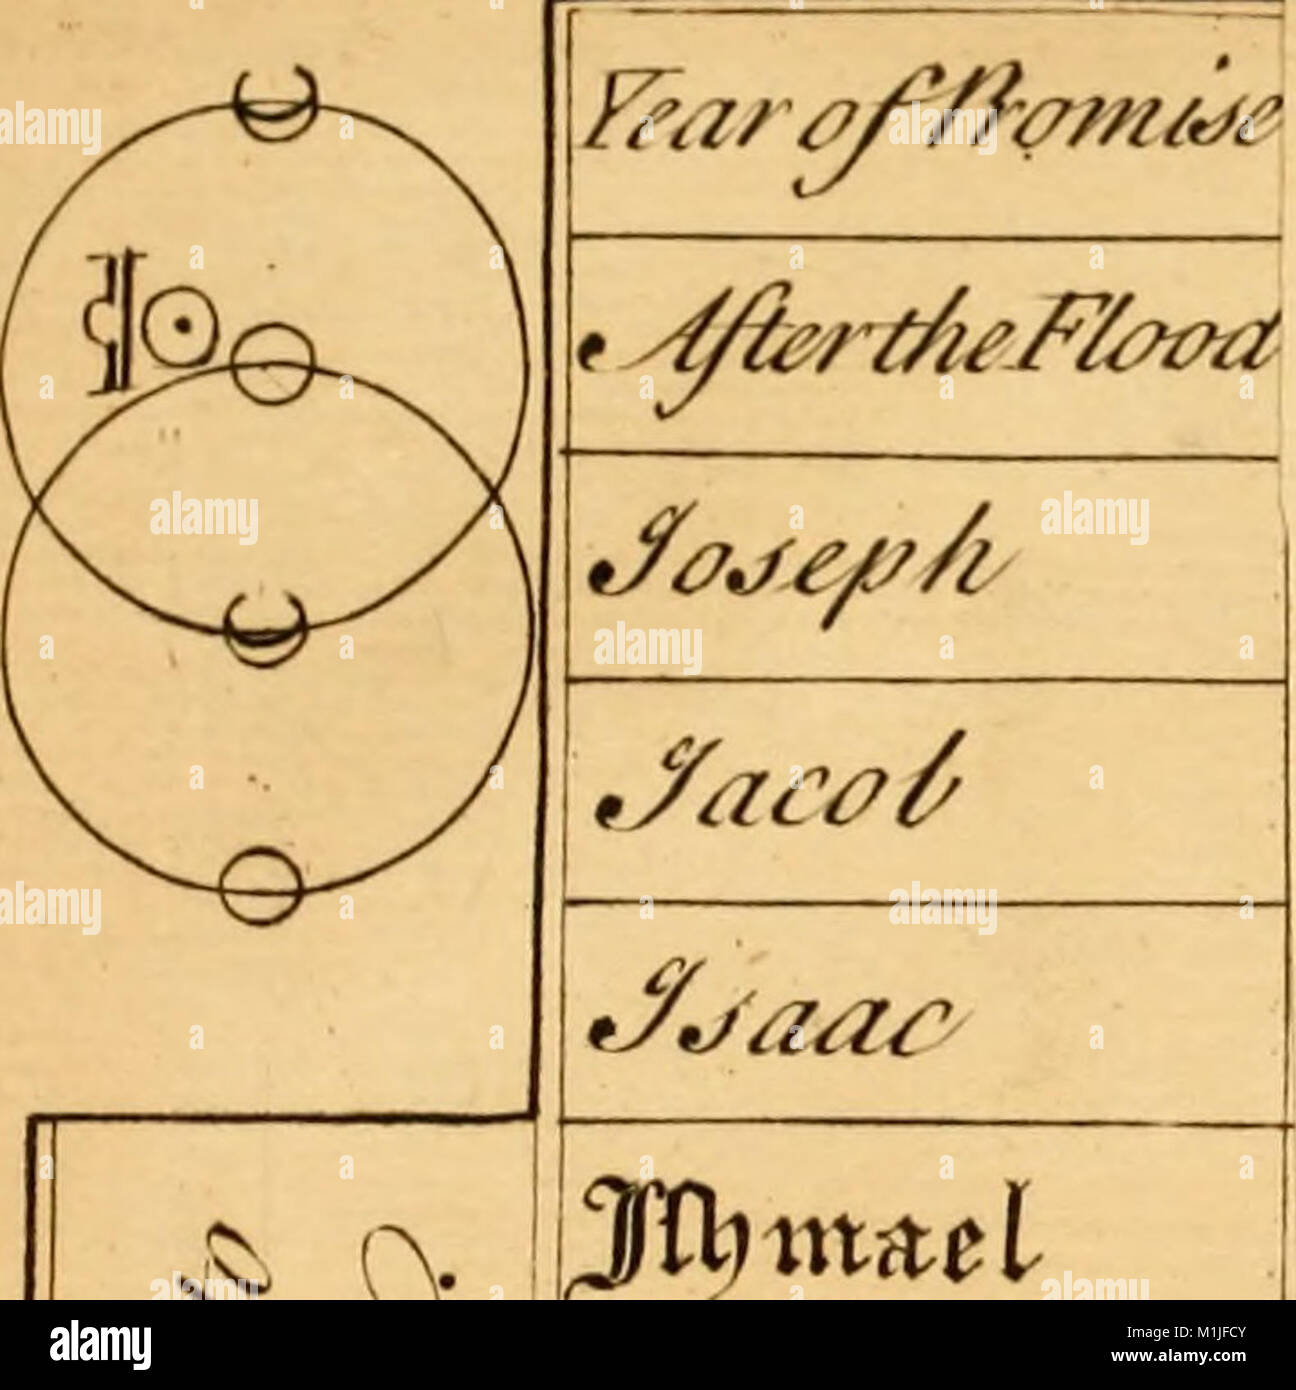 Year of Promise
After the Flood
Joseph
Jacob
Isaac
Ishmael
alamy
Image ID: M1JFCY
www.alamy.com